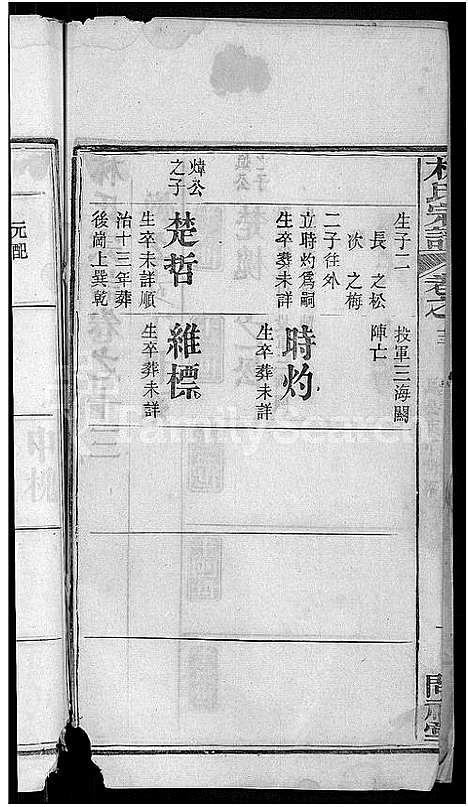 生子二
長 之松
次 之梅
二子往外
立時灼爲嗣
生卒葬未詳
投軍三海關
陣亡
時灼
生卒葬未詳
煒公
之子
楚哲
生卒未詳順
治十三年葬
後崗上巽乾
維標
生卒葬未詳
元配
FamilySearch